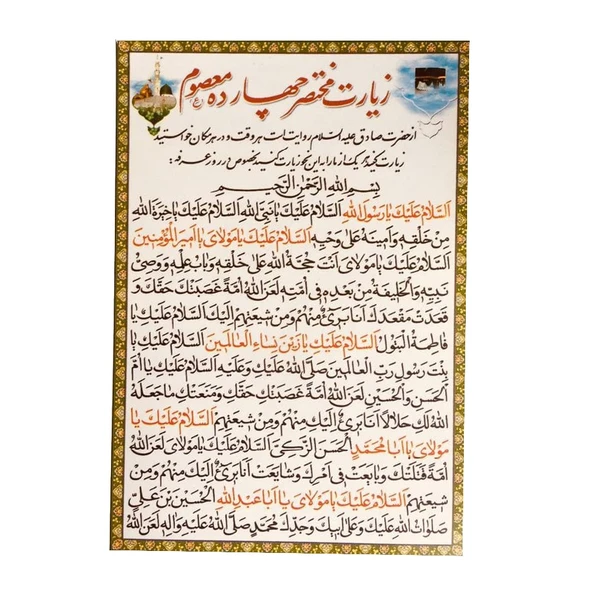 زیارت مختصر چهارده معصوم
از حضرت صادق علیه السلام روایت است هر وقت و در هر مکان خواستید
زیارت کنید هر یک از ما را به این نحو زیارت کنید بخصوص در روز عرفه :
بِسْمِ اللهِ الرَّحْمٰنِ الرَّحیمِ
اَلسَّلامُ عَلَیْكَ یا رَسُولَ اللهِ اَلسَّلامُ عَلَیْكَ یا نَبِیَّ اللهِ اَلسَّلامُ عَلَیْكَ یا خِیَرَةَ اللهِ
مِنْ خَلْقِهِ وَاَمینَهُ عَلی وَحْیِهِ اَلسَّلامُ عَلَیْكَ یا مَوْلایَ یا اَمیرَ الْمُؤْمِنینَ
اَلسَّلامُ عَلَیْكَ یا مَوْلایَ اَنْتَ حُجَّةُ اللهِ عَلی خَلْقِهِ وَبابُ عِلْمِهِ وَوَصِیُّ
نَبِیِّهِ وَالْخَلیفَةُ مِنْ بَعْدِهِ فی اُمَّتِهِ لَعَنَ اللهُ اُمَّةً غَصَبَتْكَ حَقَّكَ وَ
قَعَدَتْ مَقْعَدَكَ اَنَا بَریءٌ مِنْهُمْ وَمِنْ شیعَتِهِمْ اِلَیْكَ اَلسَّلامُ عَلَیْكِ یا
فاطِمَةُ الْبَتُولُ اَلسَّلامُ عَلَیْكِ یا زَیْنَ نِساءِ الْعالَمینَ اَلسَّلامُ عَلَیْكِ یا
بِنْتَ رَسُولِ رَبِّ الْعالَمینَ صَلَّی اللهُ عَلَیْكِ وَعَلَیْهِ اَلسَّلامُ عَلَیْكِ یا اُمَّ
الْحَسَنِ وَالْحُسَیْنِ لَعَنَ اللهُ اُمَّةً غَصَبَتْكِ حَقَّكِ وَمَنَعَتْكِ ما جَعَلَهُ
اللهُ لَكِ حَلالاً اَنَا بَریءٌ اِلَیْكِ مِنْهُمْ وَمِنْ شیعَتِهِمْ اَلسَّلامُ عَلَیْكَ یا
مَوْلایَ یا اَبا مُحَمَّدٍ الْحَسَنَ الزَّكِیَّ اَلسَّلامُ عَلَیْكَ یا مَوْلایَ لَعَنَ اللهُ
اُمَّةً قَتَلَتْكَ وَبایَعَتْ فی اَمْرِكَ وَشایَعَتْ اَنَا بَریءٌ اِلَیْكَ مِنْهُمْ وَمِنْ
شیعَتِهِمْ اَلسَّلامُ عَلَیْكَ یا مَوْلایَ یا اَبا عَبْدِ اللهِ الْحُسَیْنَ بْنَ عَلِیٍّ
صَلَواتُ اللهِ عَلَیْكَ وَعَلی اَبیكَ وَجَدِّكَ مُحَمَّدٍ صَلَّی اللهُ عَلَیْهِ وَآلِهِ لَعَنَ اللهُ